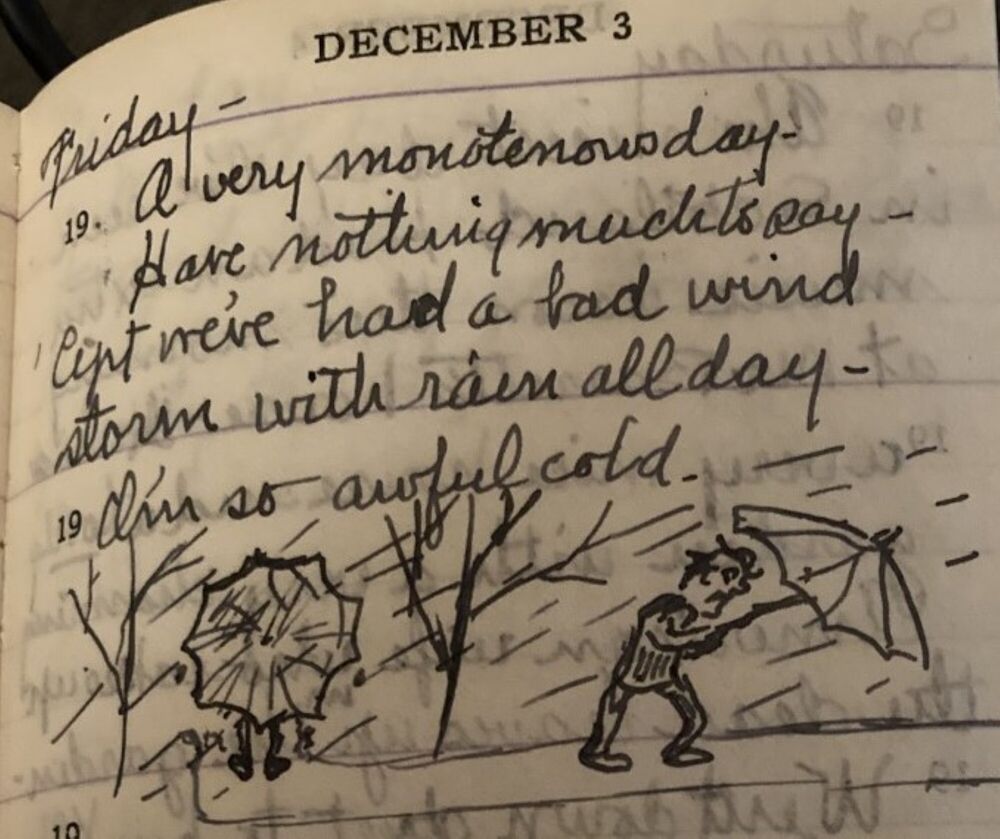 DECEMBER 3
Friday -
19. A very monotenous day -
Have nothing much to say -
'Cept we've had a bad wind
storm with rain all day -
19 I'm so awful cold.
19